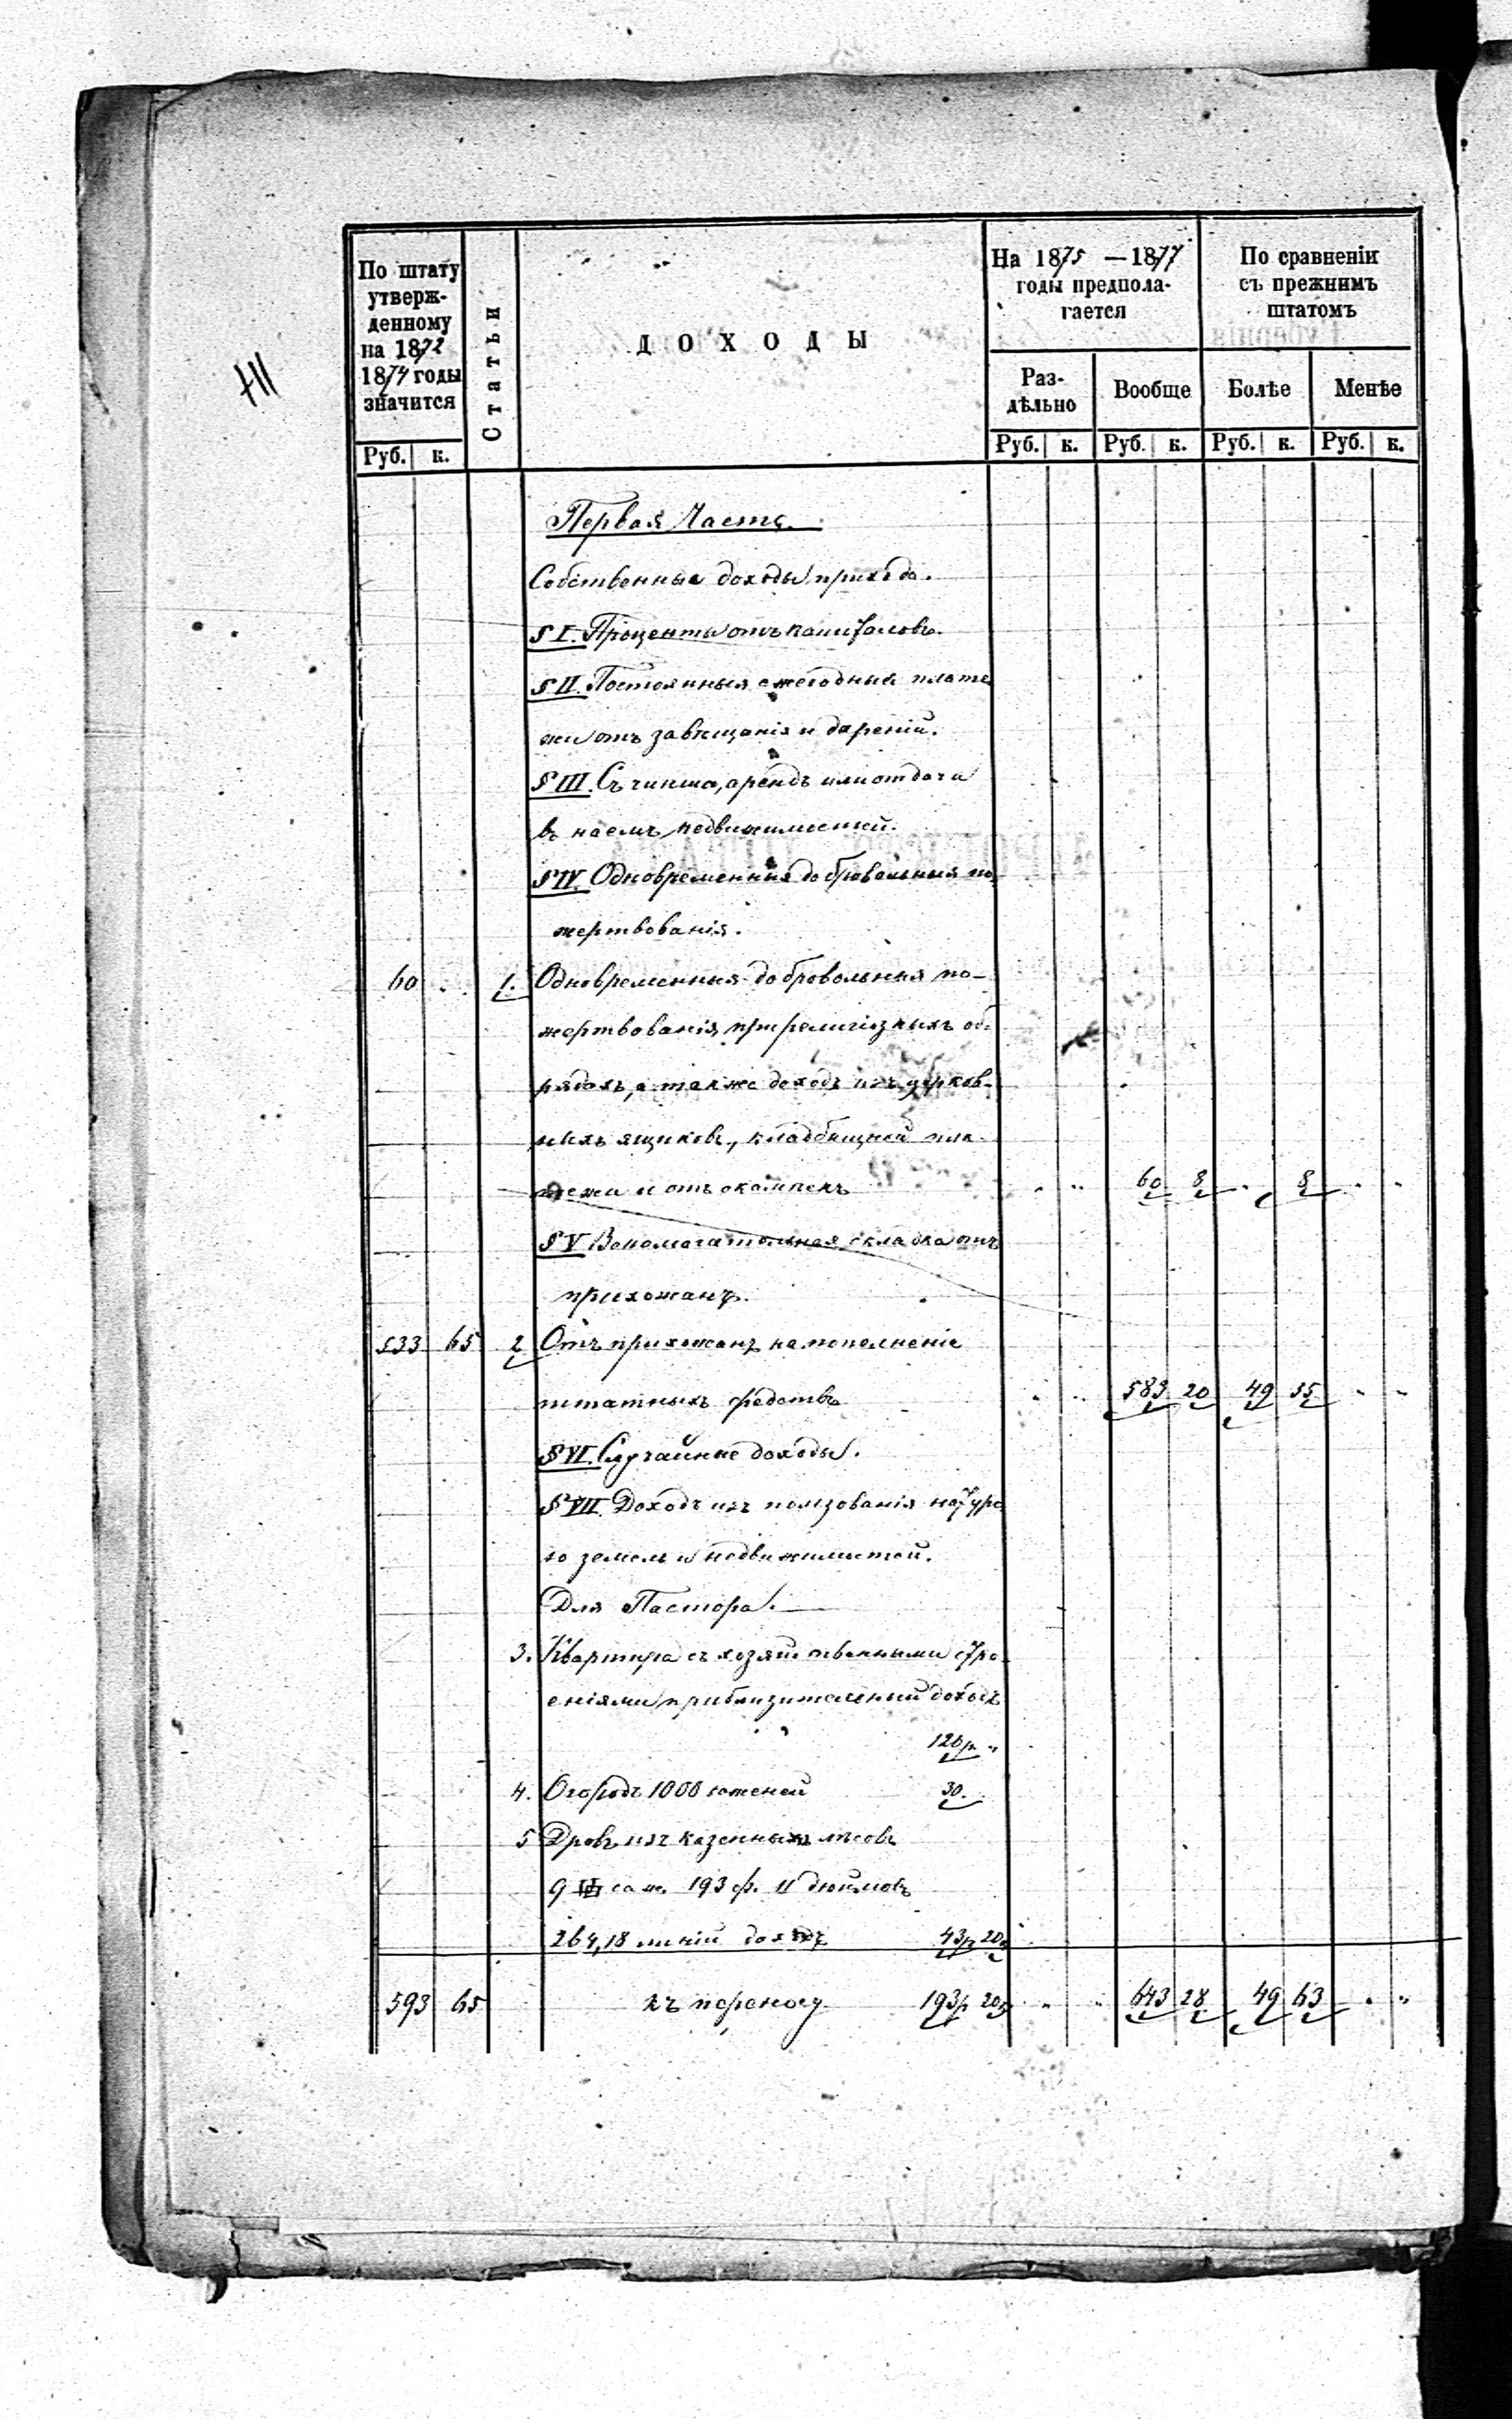 По штату утвержденному на 1872 1874 годы значится
Статьи
ДОХОДЫ
На 1875 — 1877 годы предполагается
По сравненіи съ прежнимъ штатомъ
Раздѣльно Вообще Болѣе Менѣе
Руб. к. Руб. к. Руб. к. Руб. к. Руб. к.
Первая Часть.
Собственные доходы прихода.
§ I. Проценты отъ капиталовъ.
§ II. Постоянныя ежегодныя плате
жи отъ завѣщанія и дареній.
§ III. Съ чинша, арендъ или отдачи
въ наемъ недвижимостей.
§ IV. Одновременныя добровольныя по
жертвованія.
60 . 1. Одновременныя добровольныя по-
жертвованія при религіозныхъ об-
рядахъ, а также доходъ изъ церков-
ныхъ ящиковъ, кладбищной пла-
тежи и отъ окампекъ " " 60 8 . 8 . .
§ V Вспомогательная складка отъ
прихожанъ.
533 65 2 Отъ прихожанъ на пополненіе
штатныхъ средствъ . . 583 20 49 55 . .
§ VI. Случайные доходы.
§ VII. Доходъ изъ пользованія натуро
ю земель и недвижимостей.
Для Пастора.
3. Квартира съ хозяйственными стро
еніями приблизительный доходъ
120 р. "
4. Огородъ 1000 саженей 30.
5 Дровъ изъ казенныхъ лѣсовъ
9 саж. 193 ф. 11 дюймовъ
264,18 линій доходъ 43 р 20
593 65 къ переносу 193 р 20 " " 643 28 49 63 . "